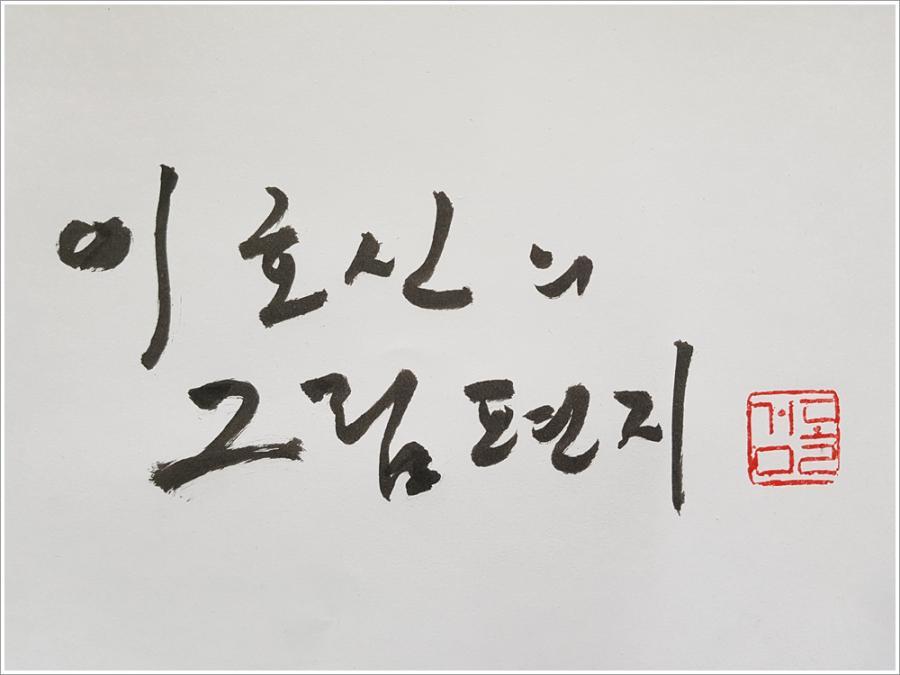 이호신의
그림편지
검돌